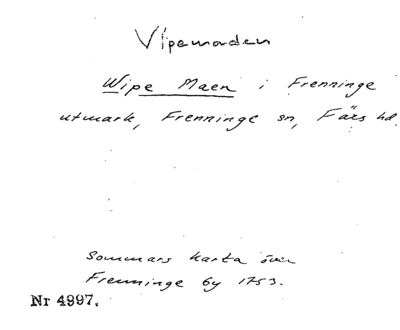 Vipemaden
Wipe Maen i Frenninge
utmark, Frenninge sn, Färs hd.
Sommars karta över
Frenninge by 1753.
Nr 4997.